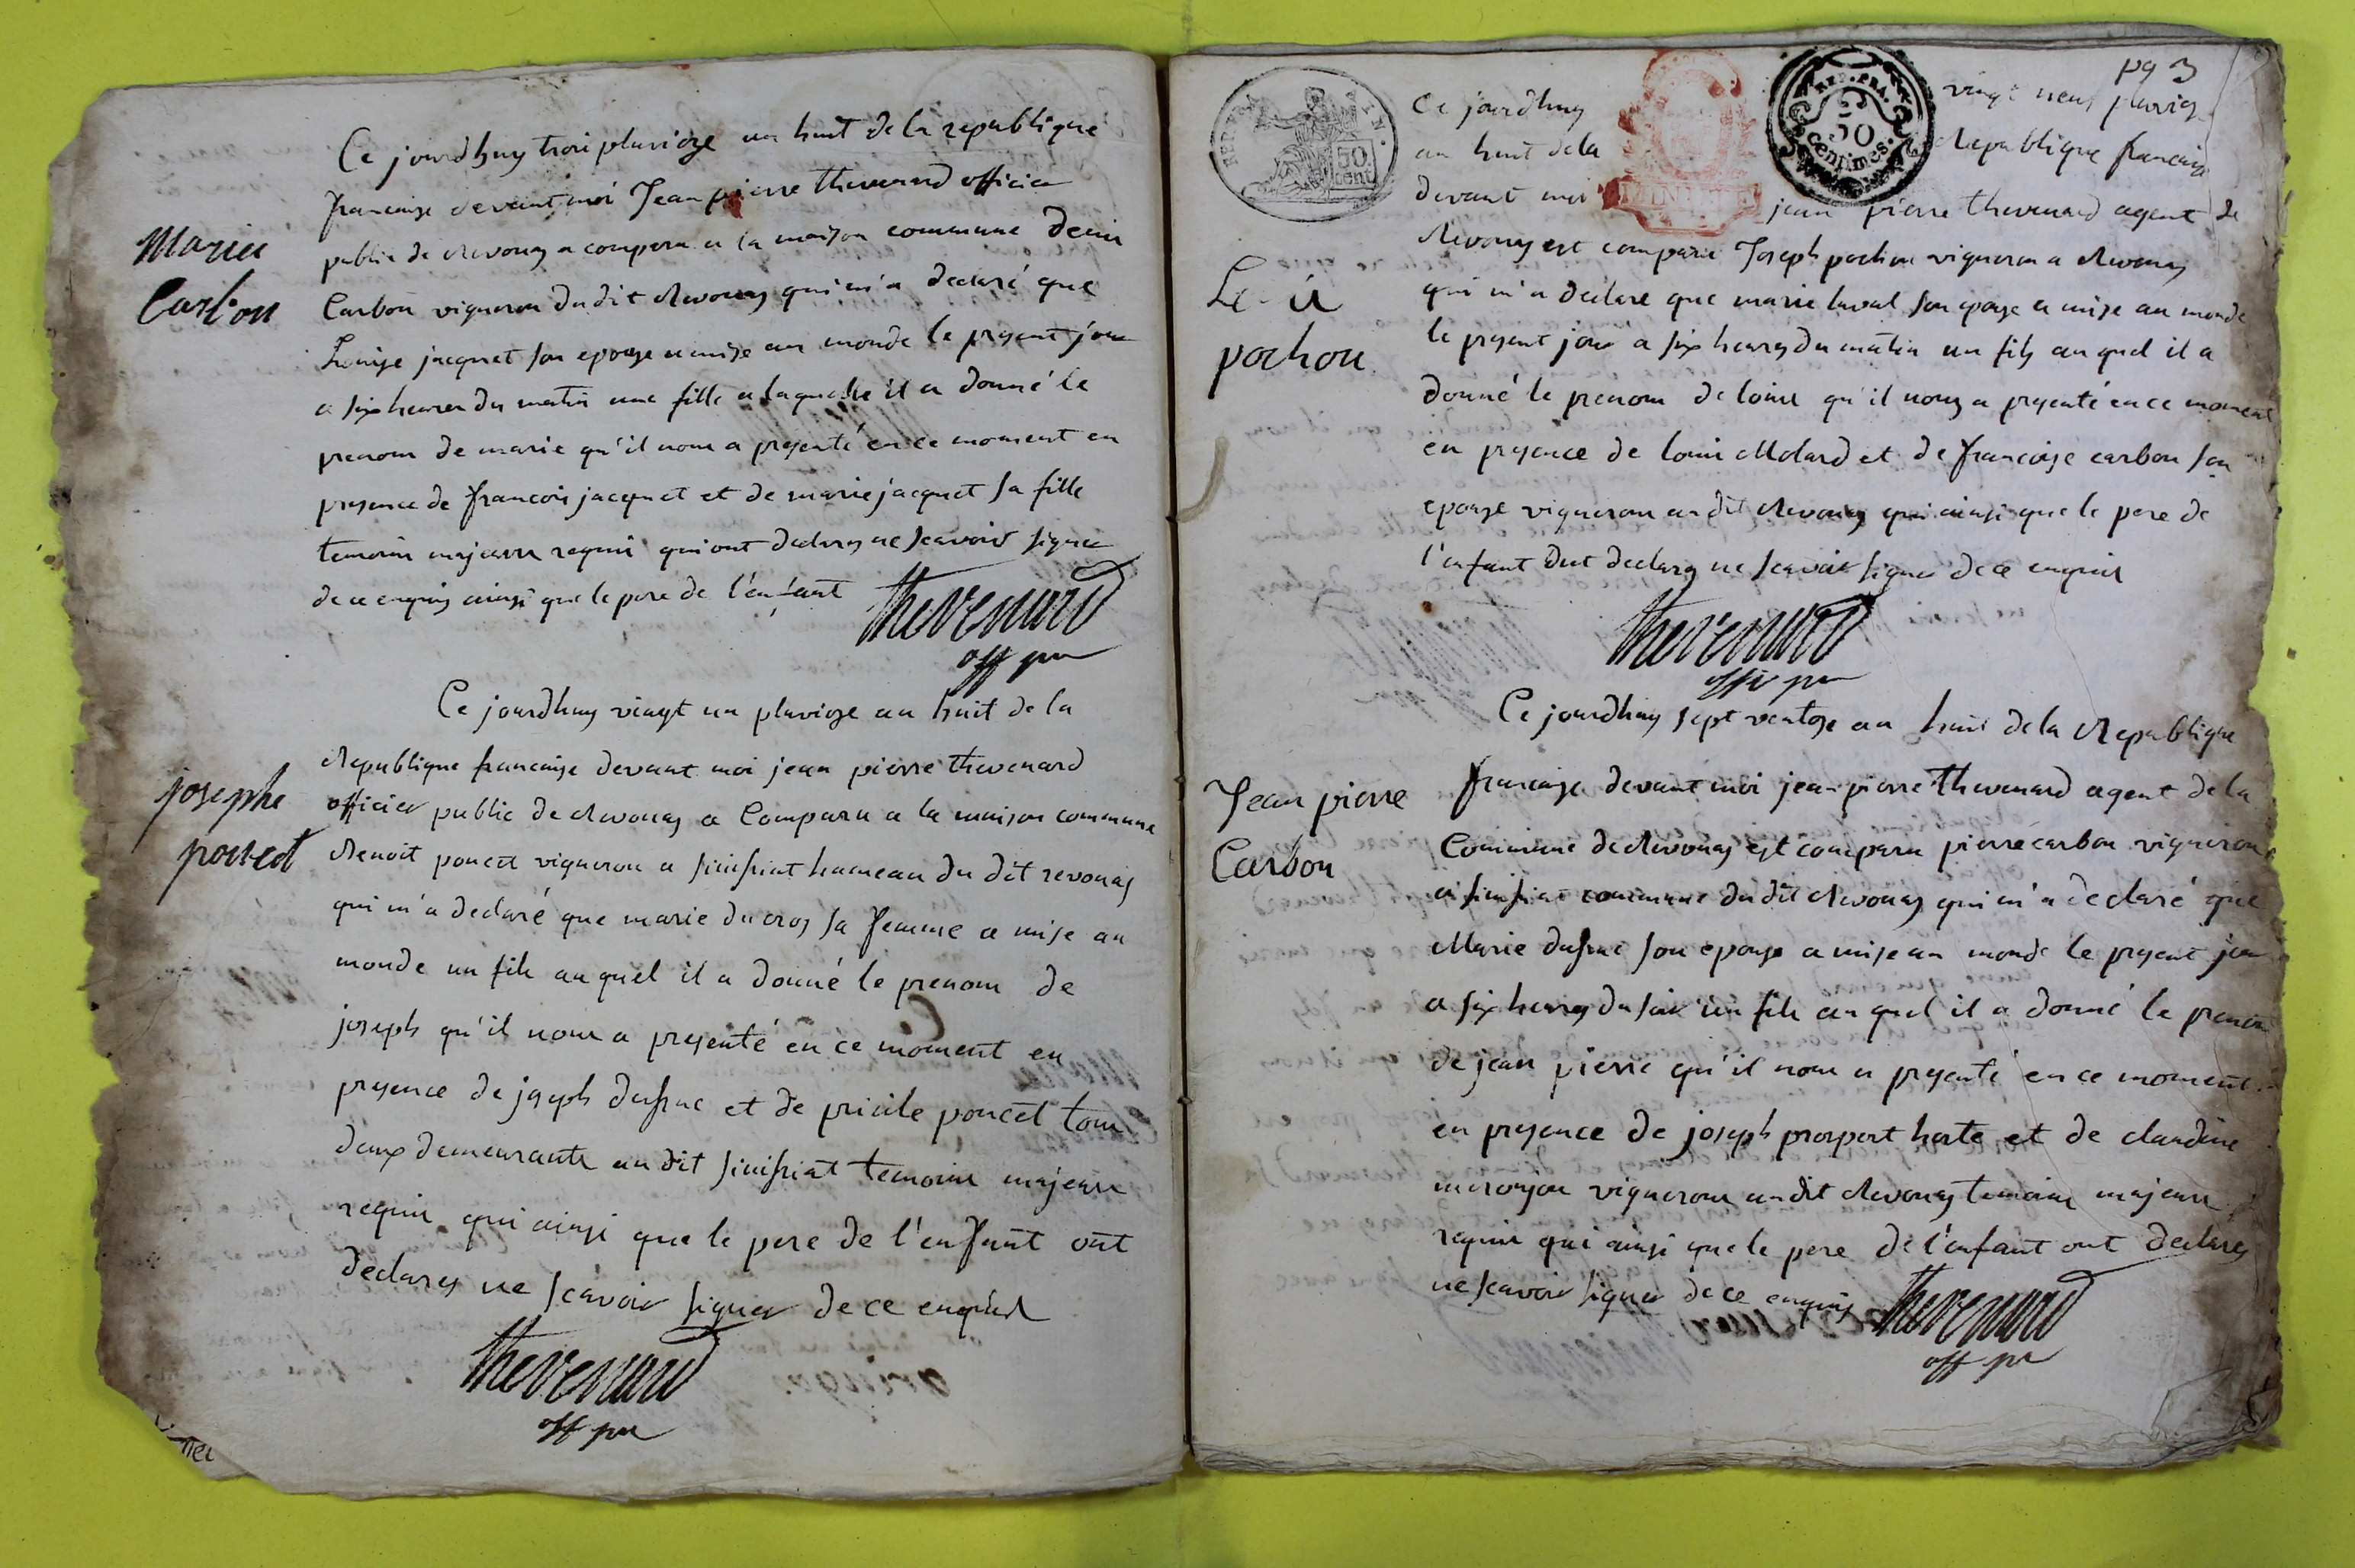 Marie
Carbon
Ce jourdhuy troi pluviose an huit de la republique
francaise devant moi Jean pierre thevenard officier
public de Revonas a comparu a la maison commune Denis
Carbon vigneron du dit Revonas qui m'a declaré que
Louise jacquet son epouse a mise au monde le present jour
a six heures du matin une fille a laquelle il a donné le
prenom de marie qu'il nous a presenté en ce moment en
presence de francois jacquet et de marie jacquet sa fille
temoins majeurs requis qui ont declares ne scavoir signer
de ce enquis ainsi que le pere de l'enfant
thevenard
off pu
Ce jourdhuy vingt un pluviose an huit de la
josephe
poncet
Republique francaise devant moi jean pierre thevenard
officier public de Revonas a Comparu a la maison commune
Benoit poncet vigneron a simfriat hameau du dit revonas
qui m'a declaré que marie ducros sa femme a mise au
monde un fils auquel il a donné le prenom de
joseph qu'il nous a presenté en ce moment en
presence de joseph dufour et de poncet tous
deux demeurants au dit simfriat temoins majeurs
requis qui ainsi que le pere de l'enfant ont
declares ne scavoir signer de ce enquis
thevenard
off pu
pg 3
REP. FRA.
50
cent
REP. FRA.
50
centimes.
Ce jourdhuy vingt neuf pluvios
an huit de la Republique francaise
devant moi jean pierre thevenard agent de
Revonas est comparu Joseph pochon vigneron a Revonas
qui m'a declaré que marie laval son epouse a mise au monde
pochon
le present jour a six heures du matin un fils auquel il a
donné le prenom de louis qu'il nous a presenté en ce moment
en presence de louis Molard et de francoise carbon son
epouse vigneron au dit Revonas qui ainsi que le pere de
l'enfant ont declares ne scavoir signer de ce enquis
thevenard
offi pu
Ce jourdhuy sept ventose an huit de la Republique
Jean pierre
Carbon
francaise devant moi jean pierre thevenard agent de la
Commune de Revonas est comparu pierre carbon vigneron
a simfriat commune du dit Revonas qui m'a declaré que
Marie dufour son epouse a mise au monde le present jour
a six heures du soir un fils auquel il a donné le prenom
de jean pierre qu'il nous a presenté en ce moment
en presence de joseph prospert et de claudine
vignerons au dit Revonas temoins majeurs
requis qui ainsi que le pere de l'enfant ont declares
ne scavoir signer de ce enquis
thevenard
off pu